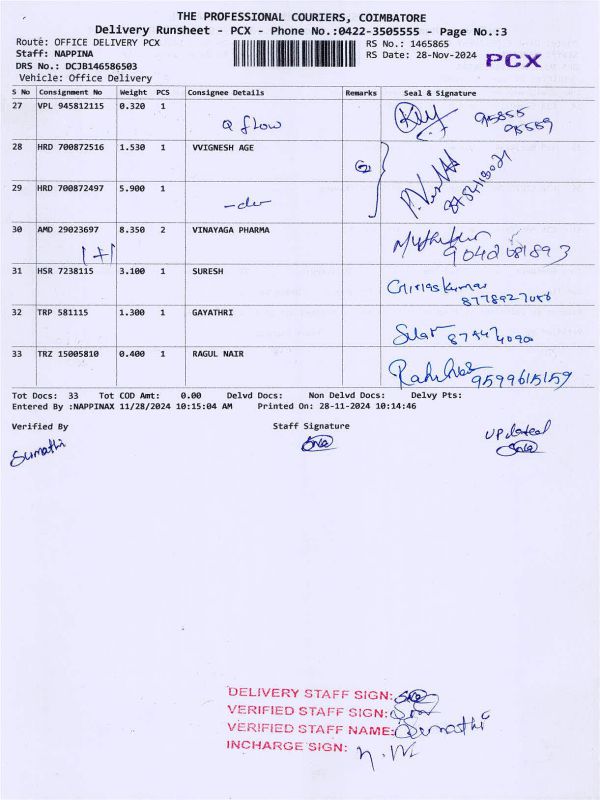 THE PROFESSIONAL COURIERS, COIMBATORE
Delivery Runsheet - PCX - Phone No.:0422-3505555 - Page No.:3
Route: OFFICE DELIVERY PCX RS No.: 1465865
Staff: NAPPINA RS Date: 28-Nov-2024 PCX
DRS No.: DCJB146586503
Vehicle: Office Delivery
S No Consignment No Weight PCS Consignee Details Remarks Seal & Signature
27 VPL 945812115 0.320 1
Q flow
28 HRD 700872516 1.530 1 VVIGNESH AGE
2
29 HRD 700872497 5.900 1
30 AMD 29023697 8.350 2 VINAYAGA PHARMA
1+1
31 HSR 7238115 3.100 1 SURESH
32 TRP 581115 1.300 1 GAYATHRI
33 TRZ 15005810 0.400 1 RAGUL NAIR
9599615159
Tot Docs: 33 Tot COD Amt: 0.00 Delvd Docs: Non Delvd Docs: Delvy Pts:
Entered By :NAPPINAX 11/28/2024 10:15:04 AM Printed On: 28-11-2024 10:14:46
Verified By Staff Signature
Sumathi
DELIVERY STAFF SIGN:
VERIFIED STAFF SIGN:
VERIFIED STAFF NAME: Sumathi
INCHARGE SIGN: